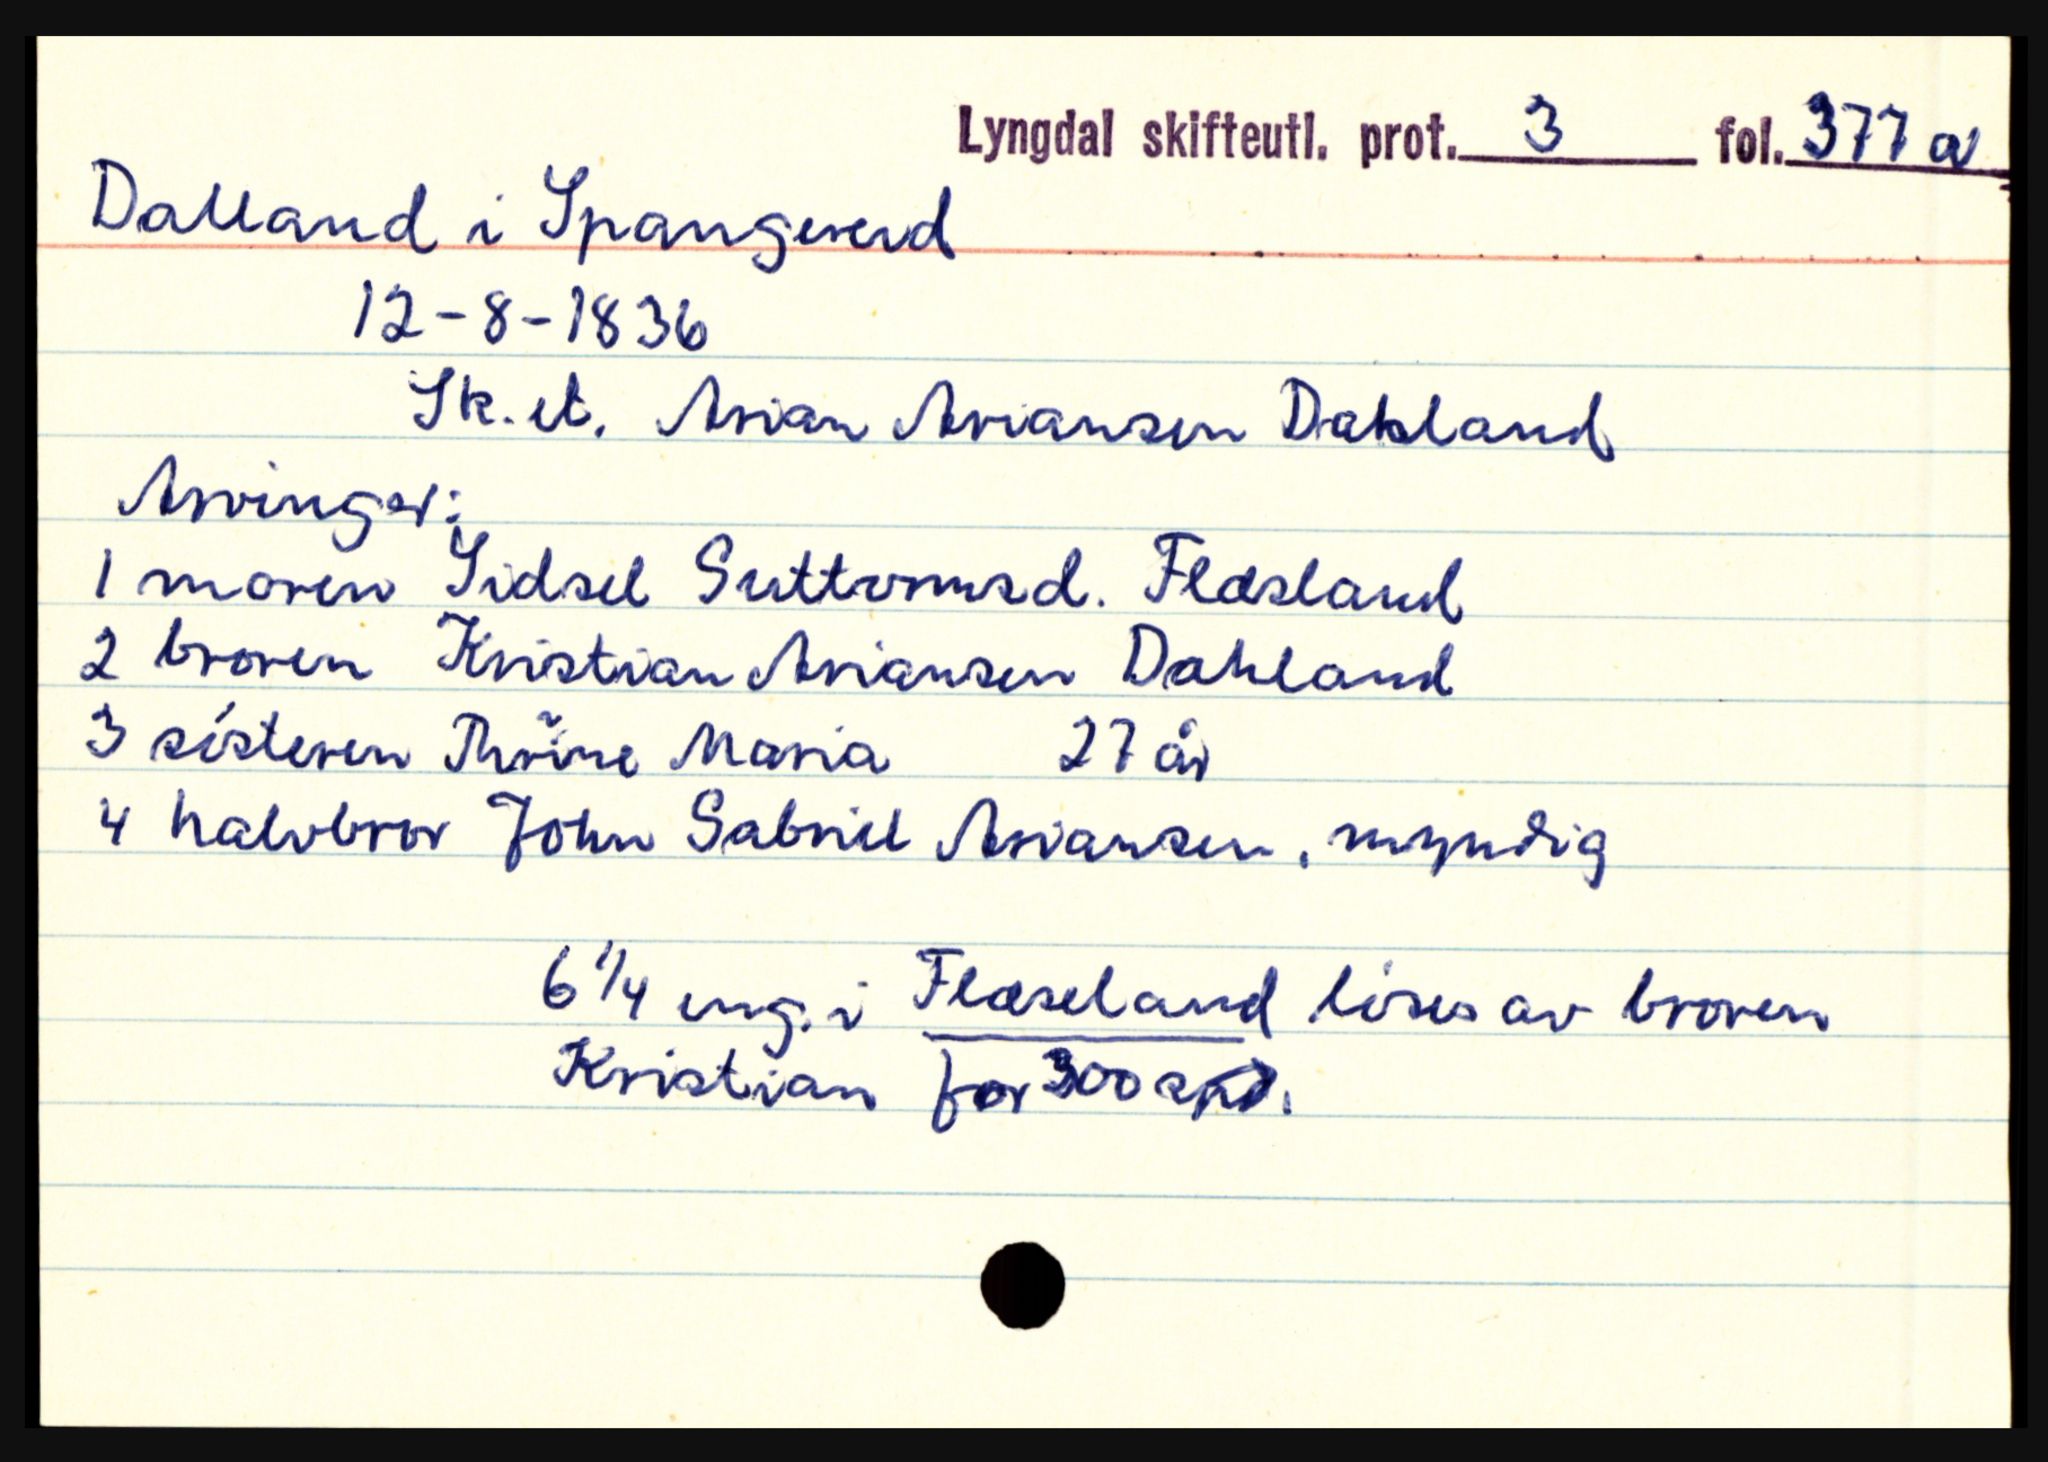 Lyngdal skifteutl. prot. 3 fol. 377 a
Dalland i Spangereid
12-8-1836
Sk. et. Arian Ariansen Dahland
Arvinger:
1 moren Sidsel Guttormsd. Flæsland
2 broren Kristian Ariansen Dahland
3 sísteren Thrine Maria 27 år
4 halvbror John Gabriel Ariansen, myndig
6 1/4 eng. i Flæseland löses av broren
Kristian for 300 spd.